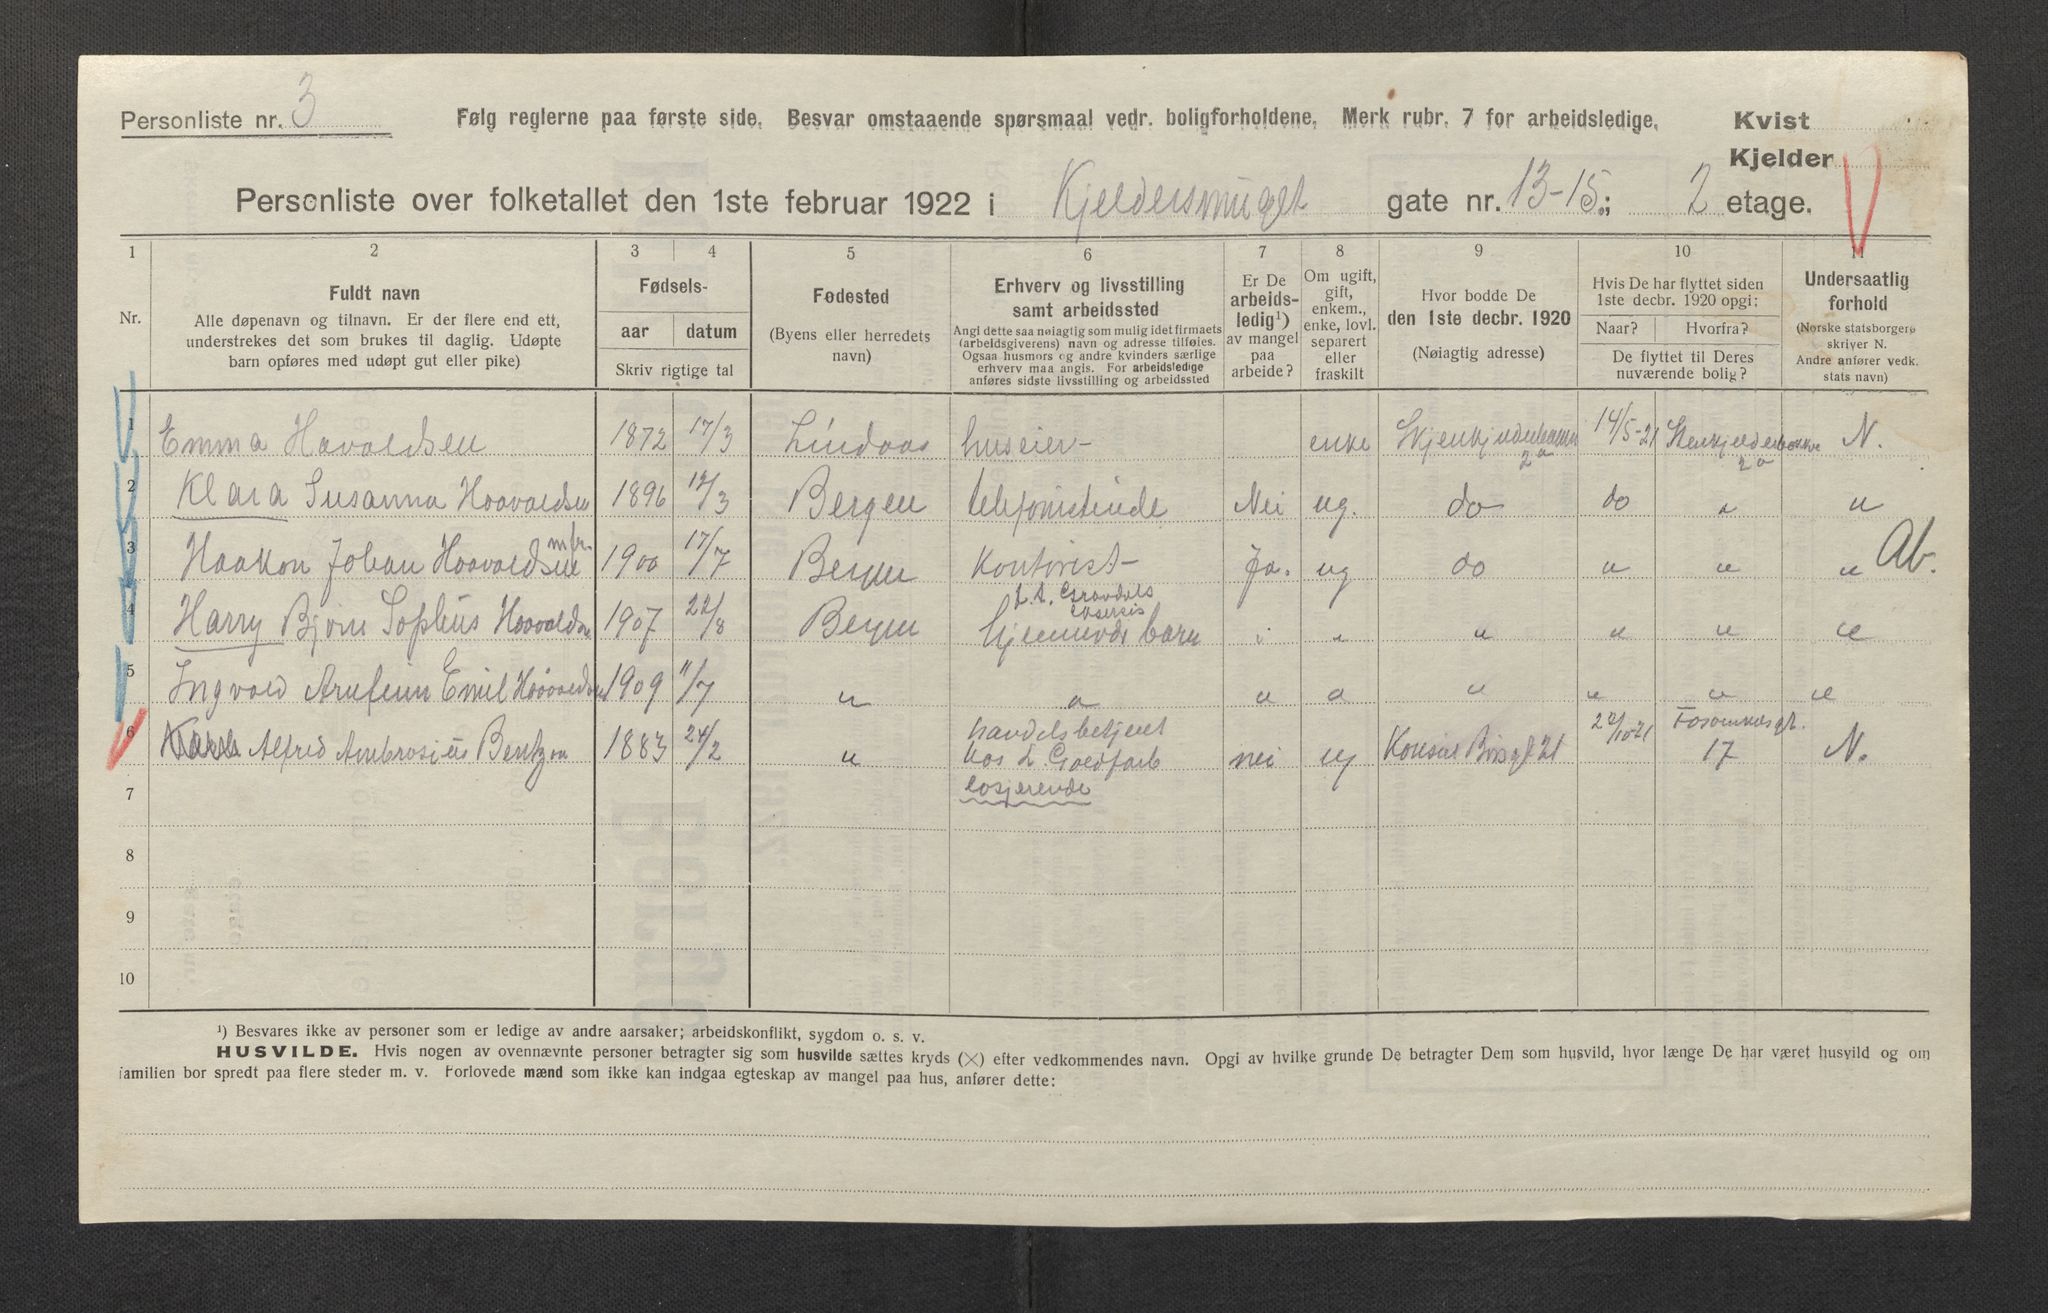 Personliste nr. 3
Følg reglerne paa første side. Besvar omstaaende spørsmaal vedr. boligforholdene. Merk rubr. 7 for arbeidsledige.
Kvist
Kjelder
Personliste over folketallet den 1ste februar 1922 i Kjeldersmuget gate nr. 13-15.; 2 etage.
1 2 3 4 5 6 7 8 9 10 11
Nr.
Fuldt navn
Alle døpenavn og tilnavn. Er der flere end ett,
understrekes det som brukes til daglig. Udøpte
barn opføres med udøpt gut eller pike)
Fødsels-
aar datum
Skriv rigtige tal
Fødested
(Byens eller herredets
navn)
Erhverv og livsstilling
samt arbeidssted
Angi dette saa nøiagtig som mulig idet firmaets
(arbeidsgiverens) navn og adresse tilføies.
Ogsaa husmors og andre kvinders særlige
erhverv maa angis. For arbeidsledige
anføres sidste livsstilling og arbeidssted
Er De
arbeids-
ledig¹)
av mangel
paa
arbeide?
Om ugift,
gift,
enkem.,
enke, lovl.
separert
eller
fraskilt
Hvor bodde De
den 1ste decbr. 1920
(Nøiagtig adresse)
Hvis De har flyttet siden
1ste decbr. 1920 opgi:
Naar? Hvorfra?
De flyttet til Deres
nuværende bolig?
Undersaatlig
forhold
(Norske statsborgere
skriver N.
Andre anfører vedk.
stats navn)
1 Emma Havaldsen 1872 17/3 Lindaas huseier- enke 2a 14/5-21 2a N.
2 Klara Susanna Haavaldsen 1896 12/3 Bergen telefonistinde Nei ug. do do " "
3 Haakon Johan Haavaldsen 1900 17/7 Bergen Kontorist- Ja. ug do " " " Ab.
4 Harry Bjørn Sophus Haavaldsen 1907 22/8 Bergen hjemmevær barn " " " " " "
5 Ingvald Arnfinn Emil Haavaldsen 1909 11/7 " " " " " " " "
6 Alfred Ambrosius Bentzon 1883 24/2 " handelsbetjent
hos L Goldfarb nei ug Konsul Børsgt 21 22/10-21 17 N.
losjerende
7
8
9
10
¹) Besvares ikke av personer som er ledige av andre aarsaker; arbeidskonflikt, sygdom o. s. v.
HUSVILDE. Hvis nogen av ovennævnte personer betragter sig som husvilde sættes kryds (×) efter vedkommendes navn. Opgi av hvilke grunde De betragter Dem som husvild, hvor længe De har været husvild og om
familien bor spredt paa flere steder m. v. Forlovede mænd som ikke kan indgaa egteskap av mangel paa hus, anfører dette: